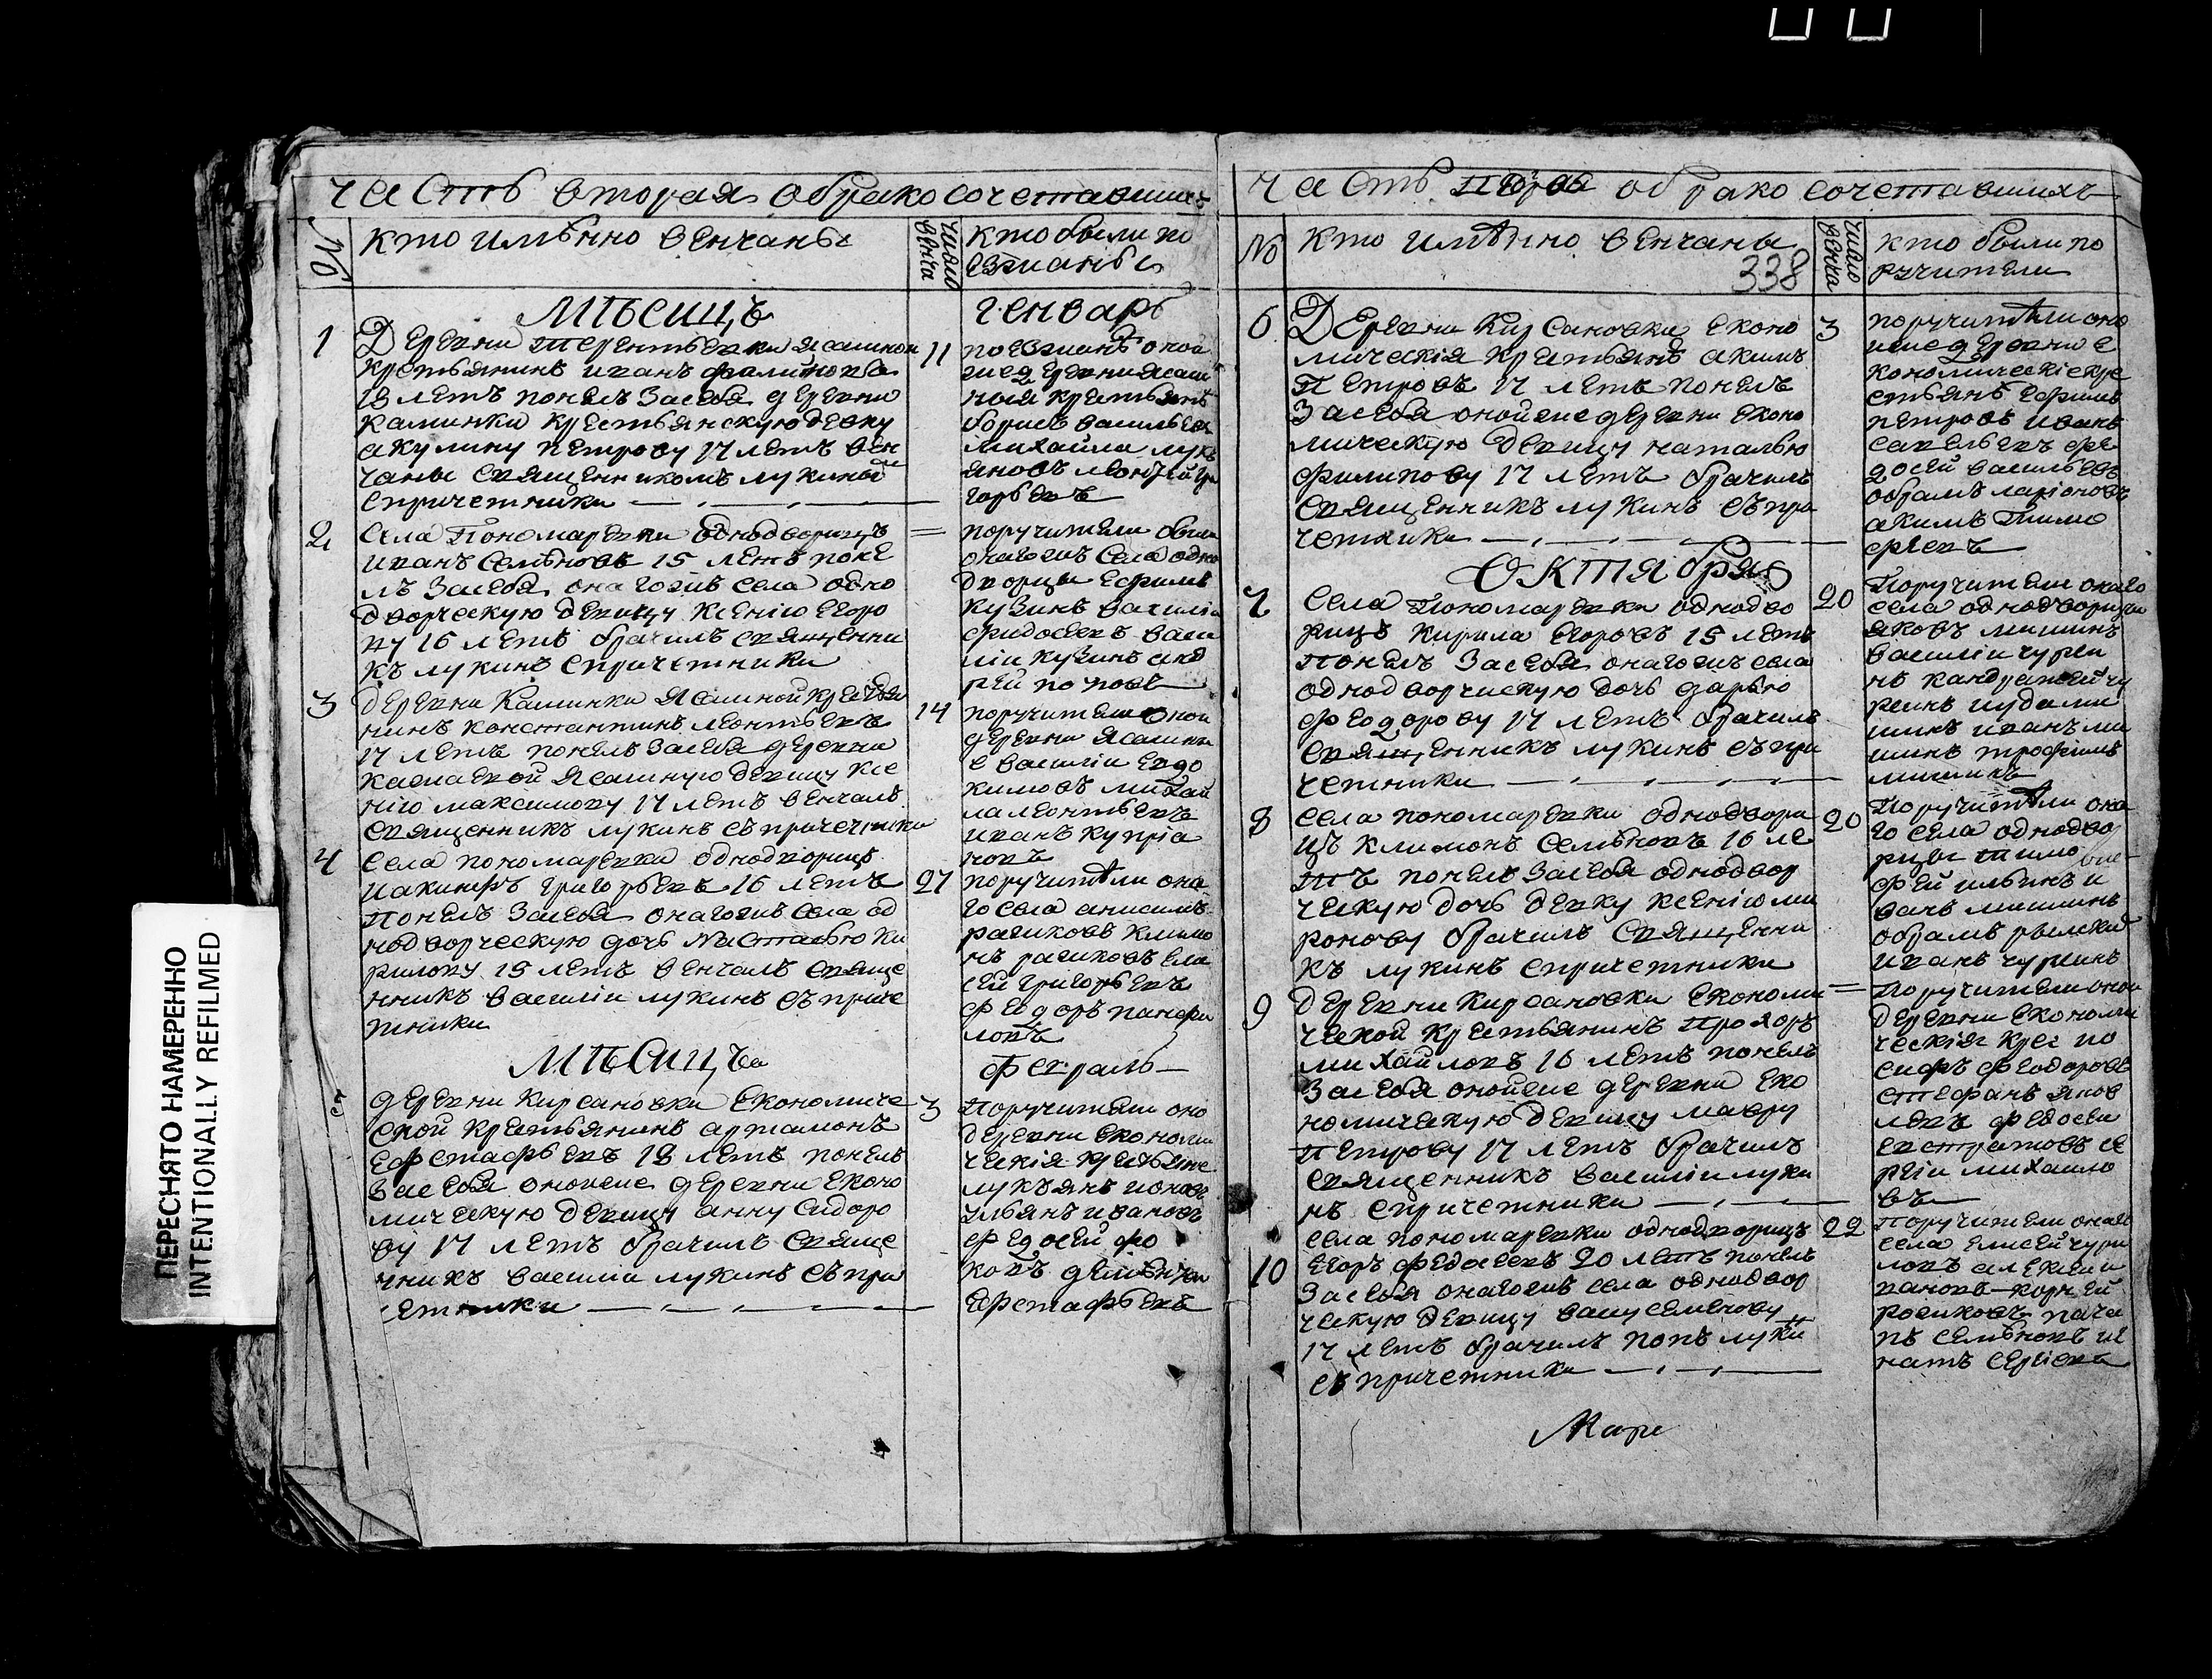 часть вторая о бракосочетавшихъ
№
кто имѣнно венчаны
число венча
кто были по
езжаныя
Мѣсицъ
генварь
1
Деревни Терентьевки ясашной
крестьянинъ иванъ
18 летъ понелъ засебя деревни
Калинки крестьянскую девку
акулину петрову 17 летъ вен
чаны священникомъ лукиным
спричетники
11
поезжанѣ оной
же деревни ясаш
ныя крестьянѣ
борисъ васильев
михайла лукь
яновъ леонтей гри
горьевъ
2
Села Пономаревки однодворицъ
иванъ семѣновъ 15 летъ поне
лъ засебя онагожъ села одно
дворческую девицу ксению егоро
ву 16 летъ брачилъ священни
къ лукинъ спричетники
=
поручители были
онагожъ села одно
дворцы ефимъ
кузинъ василиа
фидосеевъ васи
лии кузинъ анд
рей поповъ
3
деревни Калинки ясашной крестья
нинъ константинъ леонтьевъ
17 летъ понелъ засебя деревни
ясашную девицу ксе
нию максимову 17 летъ венчалъ
священникъ лукинъ съпричетники
14
поручители оной
деревни ясашны
е василии евдо
кимовъ михай
ла леонтьевъ
иванъ куприа
новъ
4
Села пономаревки однодворицъ
иакинфъ григорьевъ 16 летъ
понелъ засебя онагожъ села од
нодворческую дочь Настасью ки
рилову 15 летъ венчалъ свяще
нникъ василии лукинъ съприче
тники
27
поручитѣли она
го села анисимъ
рагиковъ климо
нъ рагиковъ ела
сеи григорьевъ
федоръ панфи
ловъ
Мѣсицъ
февраль
деревни Кирсановки економиче
ской крестьянинъ артамонъ
ефстафьевъ 18 летъ понелъ
засебя онойже деревни еконо
мическую девицу анну сидоро
ву 17 летъ брачилъ свяще
нникъ василии лукинъ съпри
четники
3
Поручители оно
деревни економи
ческия крестьяне
лукъянъ ионов
ульянъ ивановъ
федосей фо
ковъ
ефстафьевъ
часть о бракосочетавшихъ
№
кто имѣнно венчаны
338
число венча
кто были по
ручители
6
Деревни Кирсановки еконо
мическия крестьянѣ акимъ
Петровъ 17 летъ понелъ
засебя онойже деревни еконо
мическую девицу наталью
филипову 17 летъ брачилъ
священникъ лукинъ съпри
четники
3
поручитѣли оно
йже деревни е
кономические кре
стьянѣ ефимъ
петровъ иванъ
савельевъ фе
досей васильевъ
обрамъ ларионовъ
акимъ тимо
феевъ
Октября
7
Села Пономаревки однодво
рицъ кирила егоровъ 15 летъ
понелъ засебя онагожъ села
однодворчискую дочь дарью
феодорову 17 летъ брачилъ
священникъ лукинъ съпри
четники
20
Поручители онаго
села однодворицы
яковъ мишинъ
василии чуреи
нъ кандратей чу
реинъ
шинъ иванъ ми
шинъ трофимъ
мишинъ
8
Села пономаревки однодвори
цъ климонъ семѣновъ 16 ле
тъ понелъ засебя однодвор
ческую дочь девку ксению ми
ронову брачилъ священни
къ лукинъ спричетники
20
Поручитѣли она
го села однодво
рицы тимо
фей ильинъ и
ванъ мишинъ
обрамъ
иванъ чуринъ
9
деревни Кирсановки економи
ческой крестьянинъ прохоръ
михайловъ 16 летъ понелъ
засебя онойже деревни еко
номическую девицу мавру
петрову 17 летъ брачилъ
священникъ василии луки
нъ спричетники
=
Поручители оной
деревни економи
ческия крес ио
сифъ феодоровъ
стефанъ яков
левъ федосеи
евстратовъ се
ргии михаило
въ
10
села пономаревки однодворицъ
егоръ федосеевъ 20 летъ понелъ
засебя онагожъ села однодвор
ческую девицу вашу семенову
17 летъ брачилъ попъ луки
съ причетники
22
Поручители онаго
села елисей чури
ловъ алексеи и
вановъ корней
рогиковъ пача
пъ семѣновъ иг
натъ сергиевъ
Маре
ПЕРЕСНЯТО НАМЕРЕННО
INTENTIONALLY REFILMED